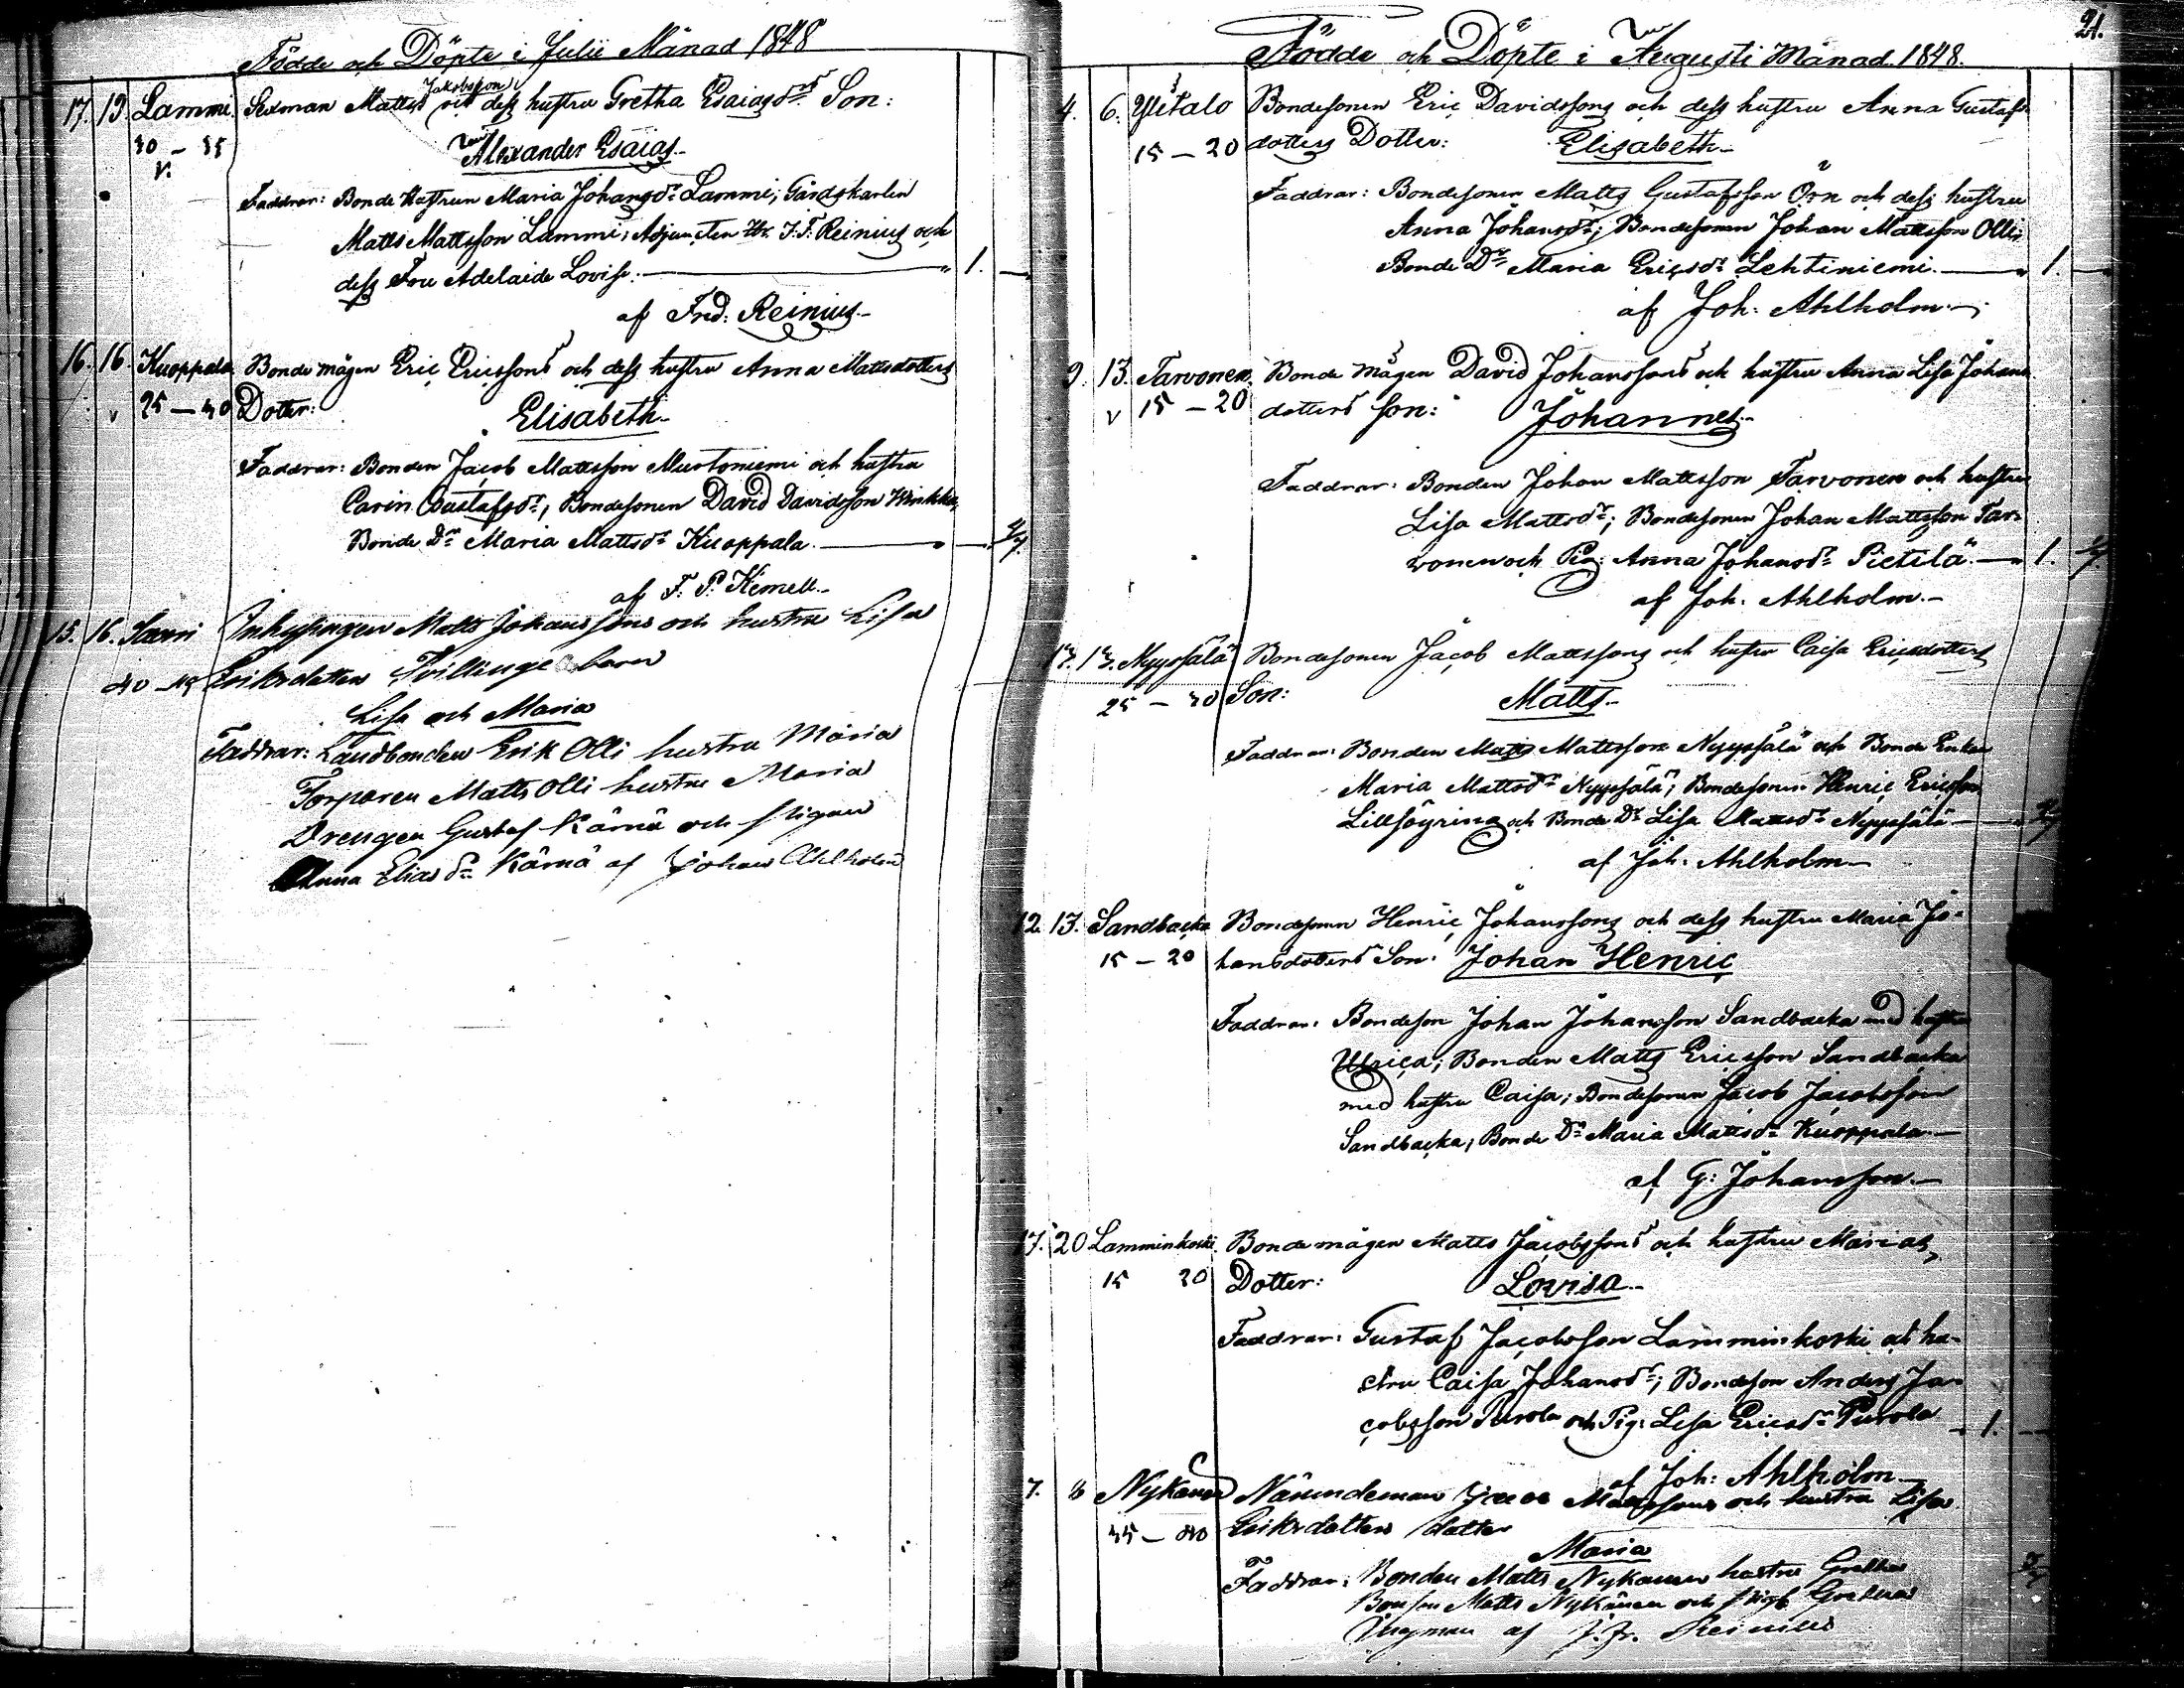 Födde och Döpte i Julii Månad 1848
17. 19. Lammi Sexman Matts Jakobsson och dess hustru Gretha Esaiasdrs Son:
30 – 35 Alexander Esaias
v.
Faddrar: Bonde Hustrun Maria Johansdr Lammi; Gårdskarlen
Matts Mattsson Lammi; Adjuncten Hr. J. F. Reinius och
dess Fru Adelaide Lovise. 1. –
af Fred: Reinius.
16. 16. Kuoppala Bonde mågen Eric Ericssons och dess hustru Anna Mattsdotters
v 25 – 30 Dotter: Elisabeth
Faddrar: Bonden Jacob Mattsson Mustoniemi och hustru
Carin Gustafsdr, Bondesonen David Davidsson
Bonde Dr Maria Mattsdr Kuoppala.
af F. P. Kemell.
15. 16. Inhysingen Matts Johanssons och hustru Lisa
Eriksdotters Tvillinge barn
Lisa och Maria
Faddrar: Landbonden Erik Olli hustru Maria
Torparen Matts Olli hustru Maria
Drengen Gustaf Kärnä och pigan
Anna Eliasdr Kärnä af Johan Ahlholm
21.
Födde och Döpte i Augusti Månad 1848.
4. 6. Ylitalo Bondesonen Eric Davidssons och dess hustru Anna Gustafs
15 – 20 dotters Dotter: Elisabeth
Faddrar: Bondesonen Matts Gustafsson Örn och dess hustru
Anna Johansdr; Bondesonen Johan Mattsson Olli
Bonde Dr Maria Ericsdr Lehtiniemi. 1. –
af Joh: Ahlholm.
9. 13. Tarvonen. Bonde Mågen David Johanssons och hustru Anna Lisa Johans
v 15 – 20 dotters Son: Johannes
Faddrar: Bonden Johan Mattsson Tarvonen och hustru
Lisa Mattsdr; Bondesonen Johan Mattsson Tar-
vonen och Pig: Anna Johansdr Pietilä. 1.
af Joh. Ahlholm.
13. Nyyssälä Bondesonen Jacob Mattssons och hustru Caisa Ericsdotters
25 – 30 Son: Matts
Faddrar: Bonden Matts Mattsson Nyyssälä och Bonde Enkan
Maria Mattsdr Nyyssälä; Bondesonen Henric Ericsson
Lillsöyring och Bonde Dr Lisa Mattsdr Nyyssälä
af Joh: Ahlholm
12. 13. Sandbacka Bondesonen Henric Johanssons och dess hustru Maria Jo-
15 – 20 hansdotters Son: Johan Henric
Faddrar: Bondeson Johan Johansson Sandbacka med hustru
Ulrica; Bonden Matts Ericsson Sandbacka
med hustru Caisa; Bondesonen Jacob Jacobsson
Sandbacka; Bonde Dr Maria Mattsdr Kuoppala.
af G: Johansson.
17. 20 Lamminkoski Bondemågen Matts Jacobssons och hustru Marias
15 20 Dotter: Lovisa
Faddrar: Gustaf Jacobsson Lamminkoski och hu-
stru Caisa Johansdr; Bondeson Anders Ja-
cobsson Purola och Pig: Lisa Ericsdr Purola 1. –
af Joh: Ahlholm
7. 8 Nykänen Mattssons och hustru Lisa
35 – 40 Eriksdotters dotter
Maria
Faddrar: Bonden Matts Nykänen hustru Gretha
Matts Nykänen och Gretha
af J. Fr. Reinius